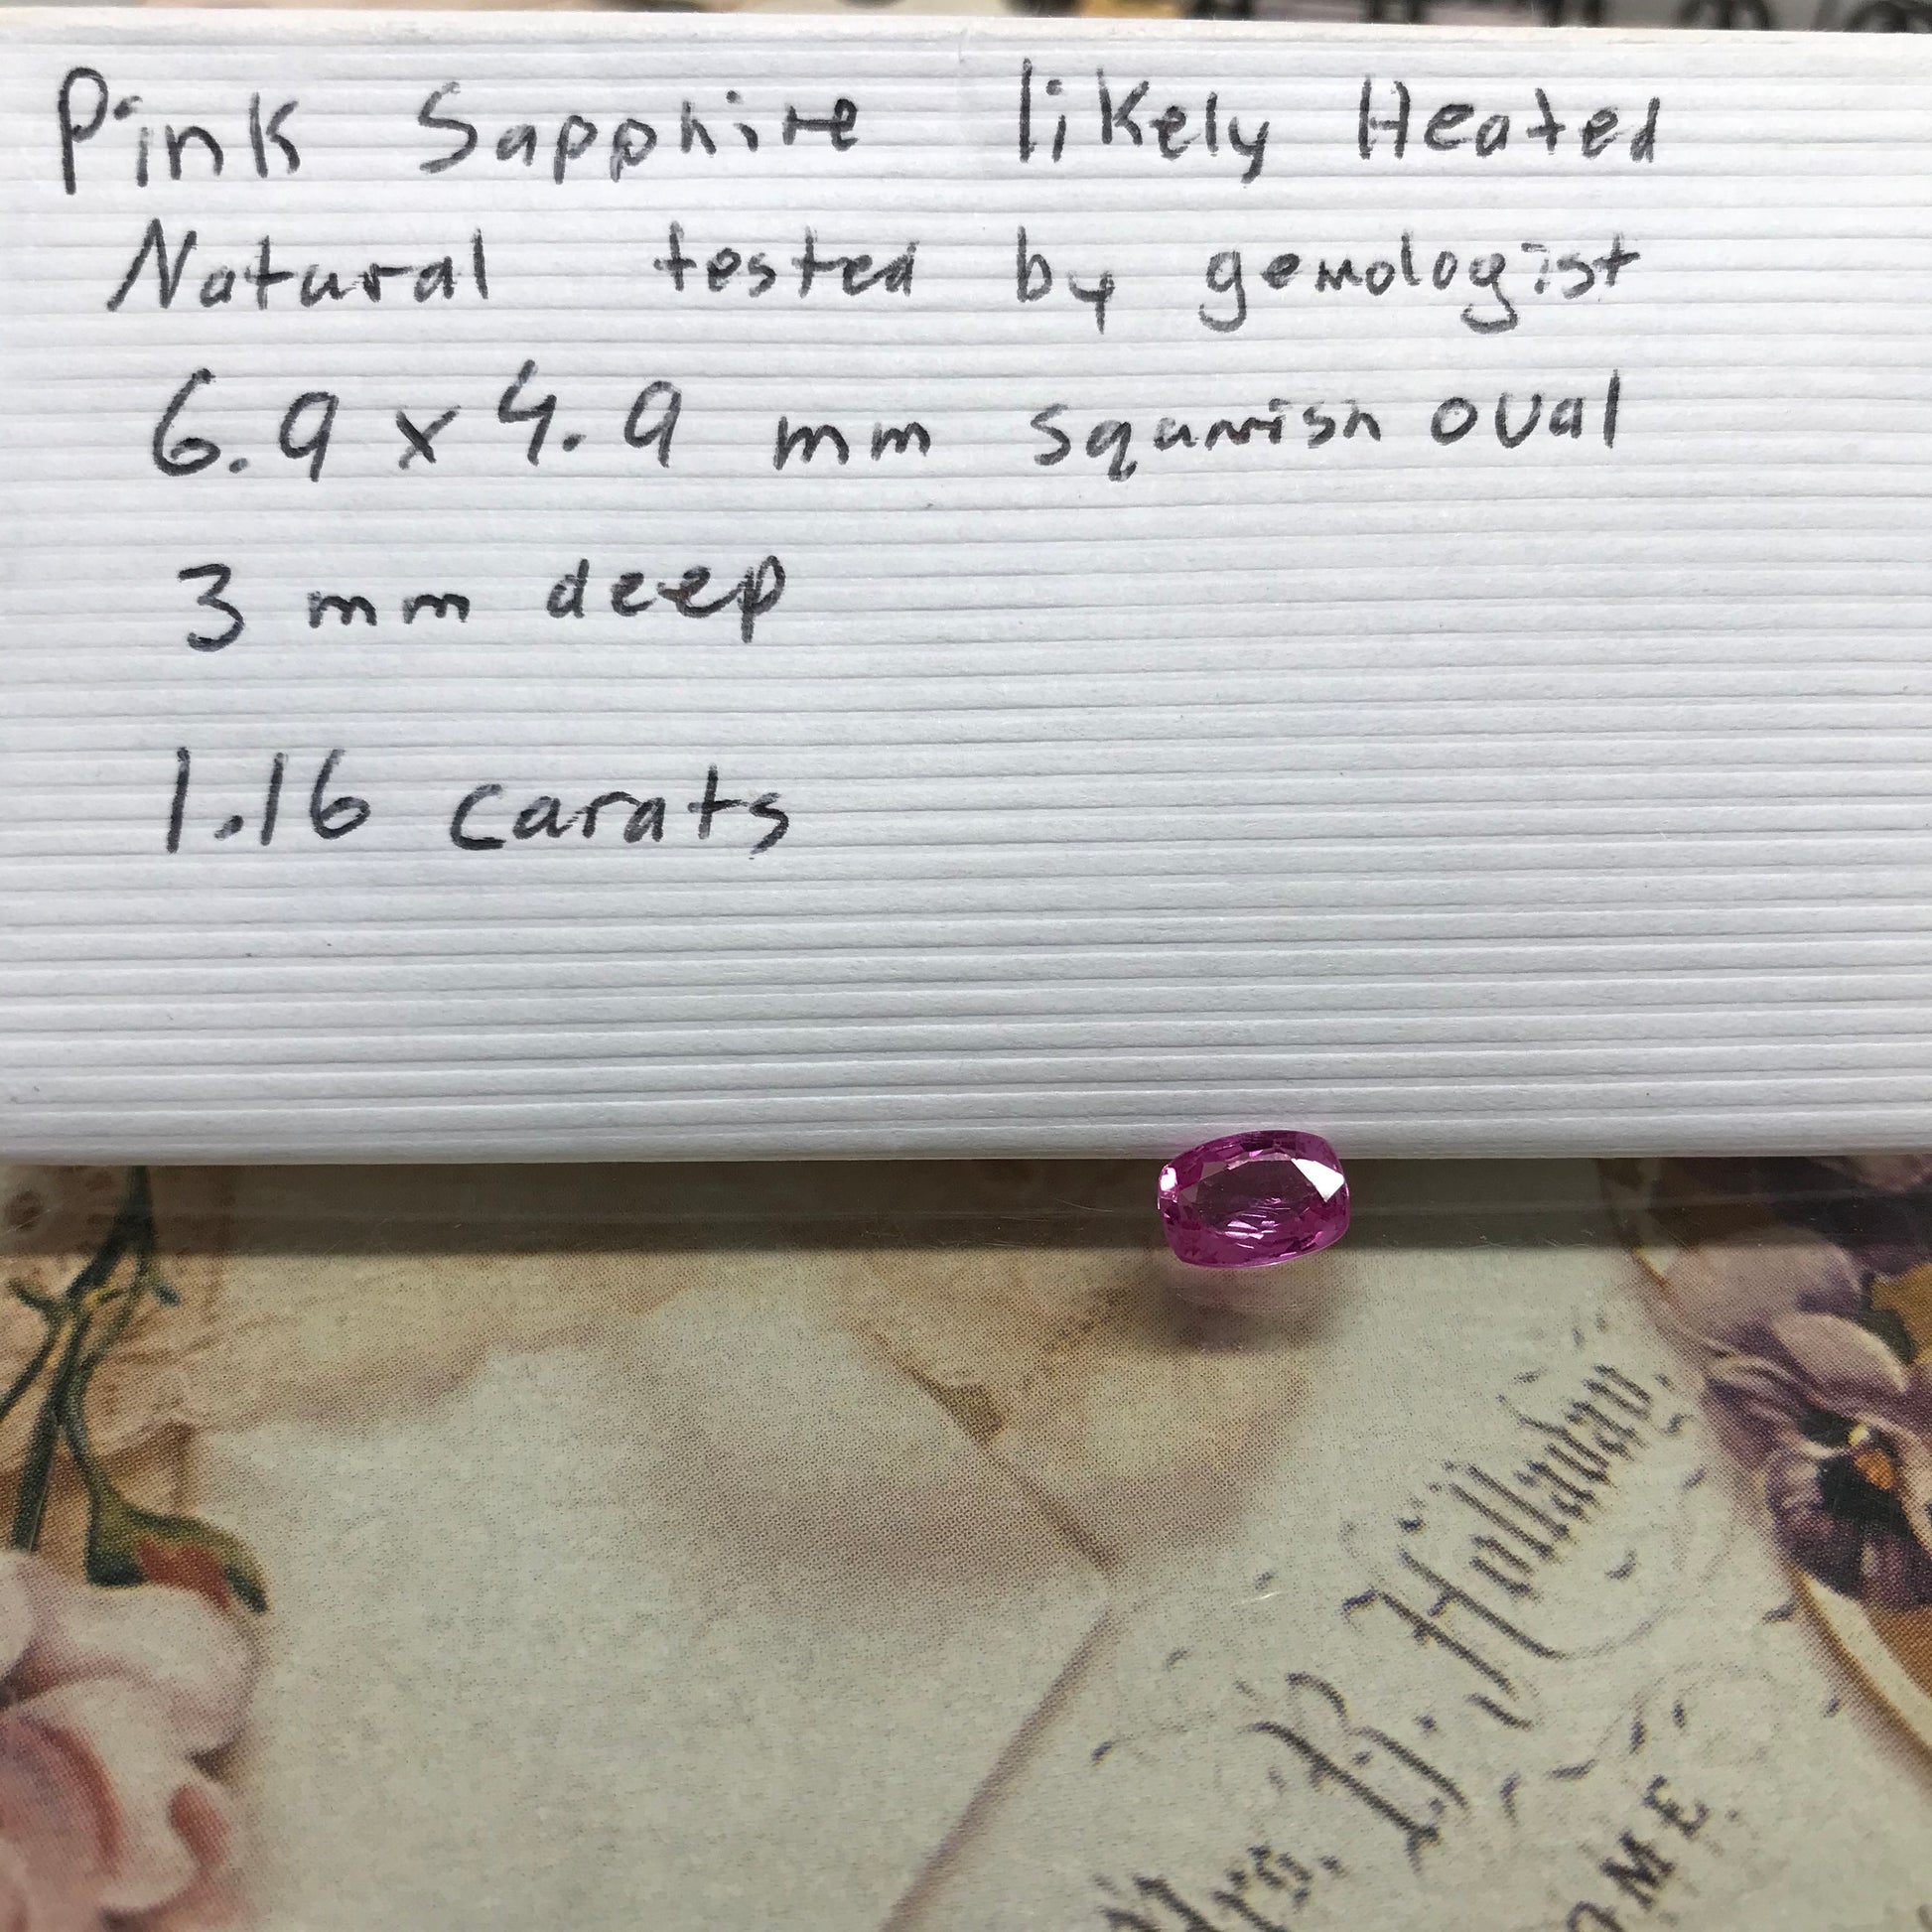 Pink Sapphire likely Heated
Natural tested by gemologist
6.9 x 4.9 mm squarish oval
3 mm deep
1.16 carats
Mrs. B. Holladay,